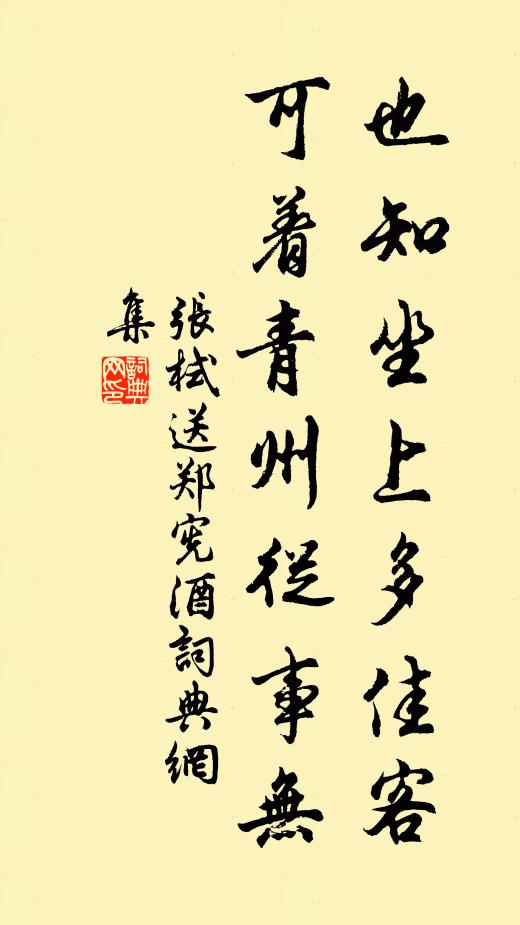 也知坐上多佳客
可着青州從事無
張栻送郑宪酒詞典網
集
詞典网印